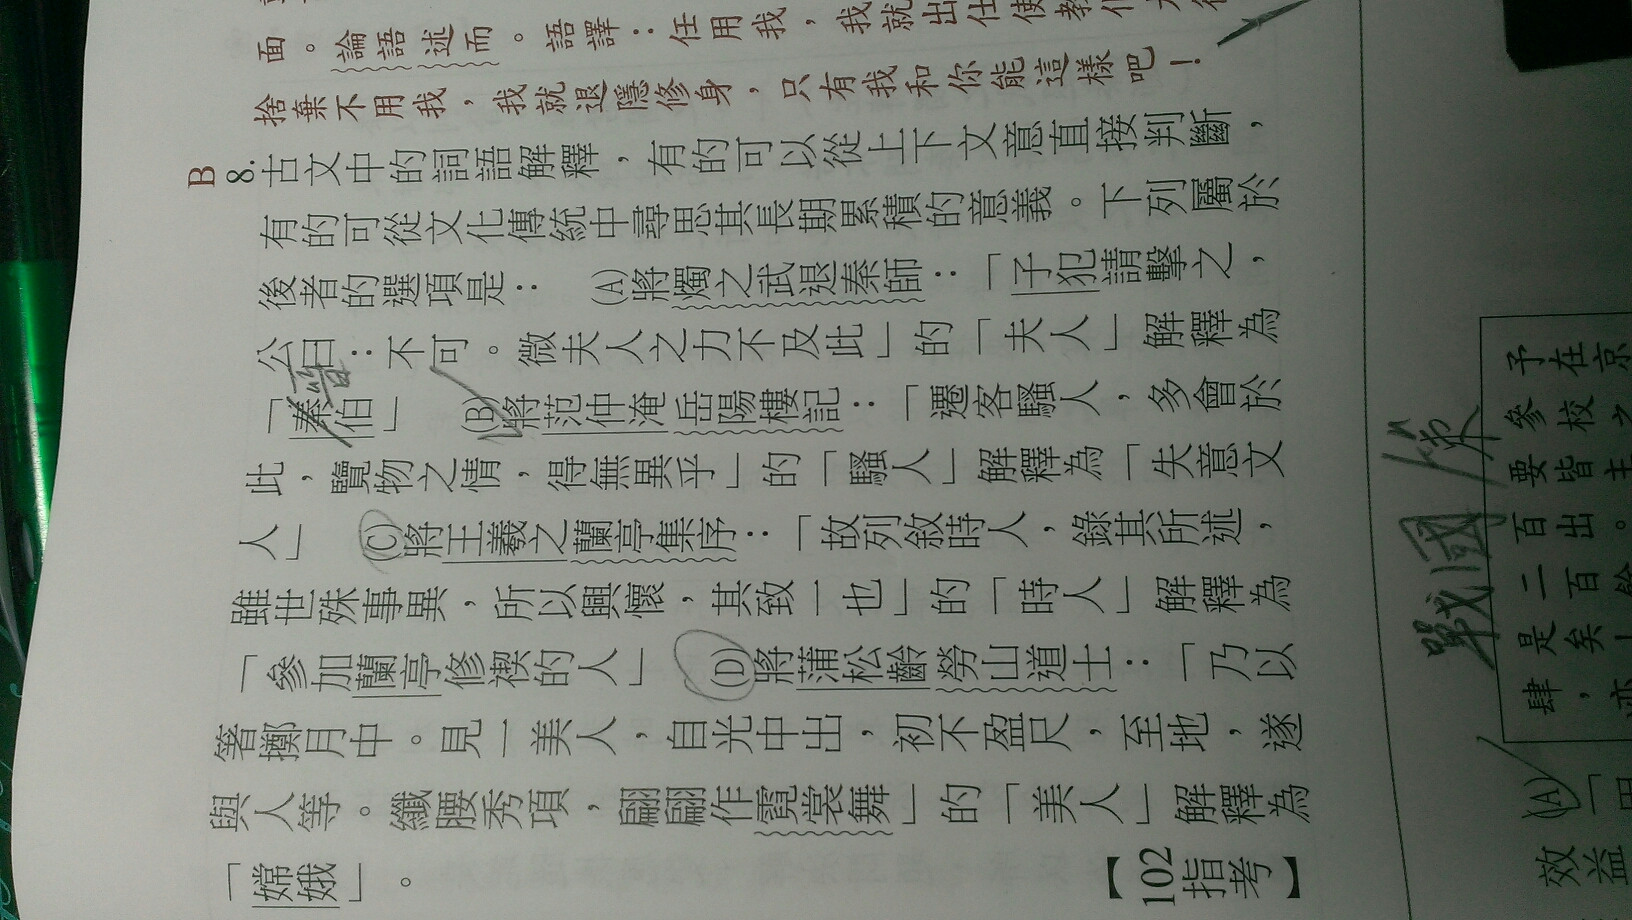 面。論語述而。語譯：任用我，我就出仕使教化
捨棄不用我，我就退隱修身，只有我和你能這樣吧！
B 8.古文中的詞語解釋，有的可以從上下文意直接判斷，
有的可從文化傳統中尋思其長期累積的意義。下列屬於
後者的選項是： (A)將燭之武退秦師：「子犯請擊之，
公曰：不可。微夫人之力不及此」的「夫人」解釋為
「秦伯」 (B)將范仲淹岳陽樓記：「遷客騷人，多會於
此，覽物之情，得無異乎」的「騷人」解釋為「失意文
人」 (C)將王羲之蘭亭集序：「故列敘時人，錄其所述，
雖世殊事異，所以興懷，其致一也」的「時人」解釋為
「參加蘭亭修禊的人」 (D)將蒲松齡勞山道士：「乃以
箸擲月中。見一美人，自光中出，初不盈尺，至地，遂
與人等。纖腰秀項，翩翩作霓裳舞」的「美人」解釋為
「嫦娥」。 【102指考】
戰國策
予在京
參校之
要皆主
百出。
二百餘
是矣
肆，
(A)「用
效益